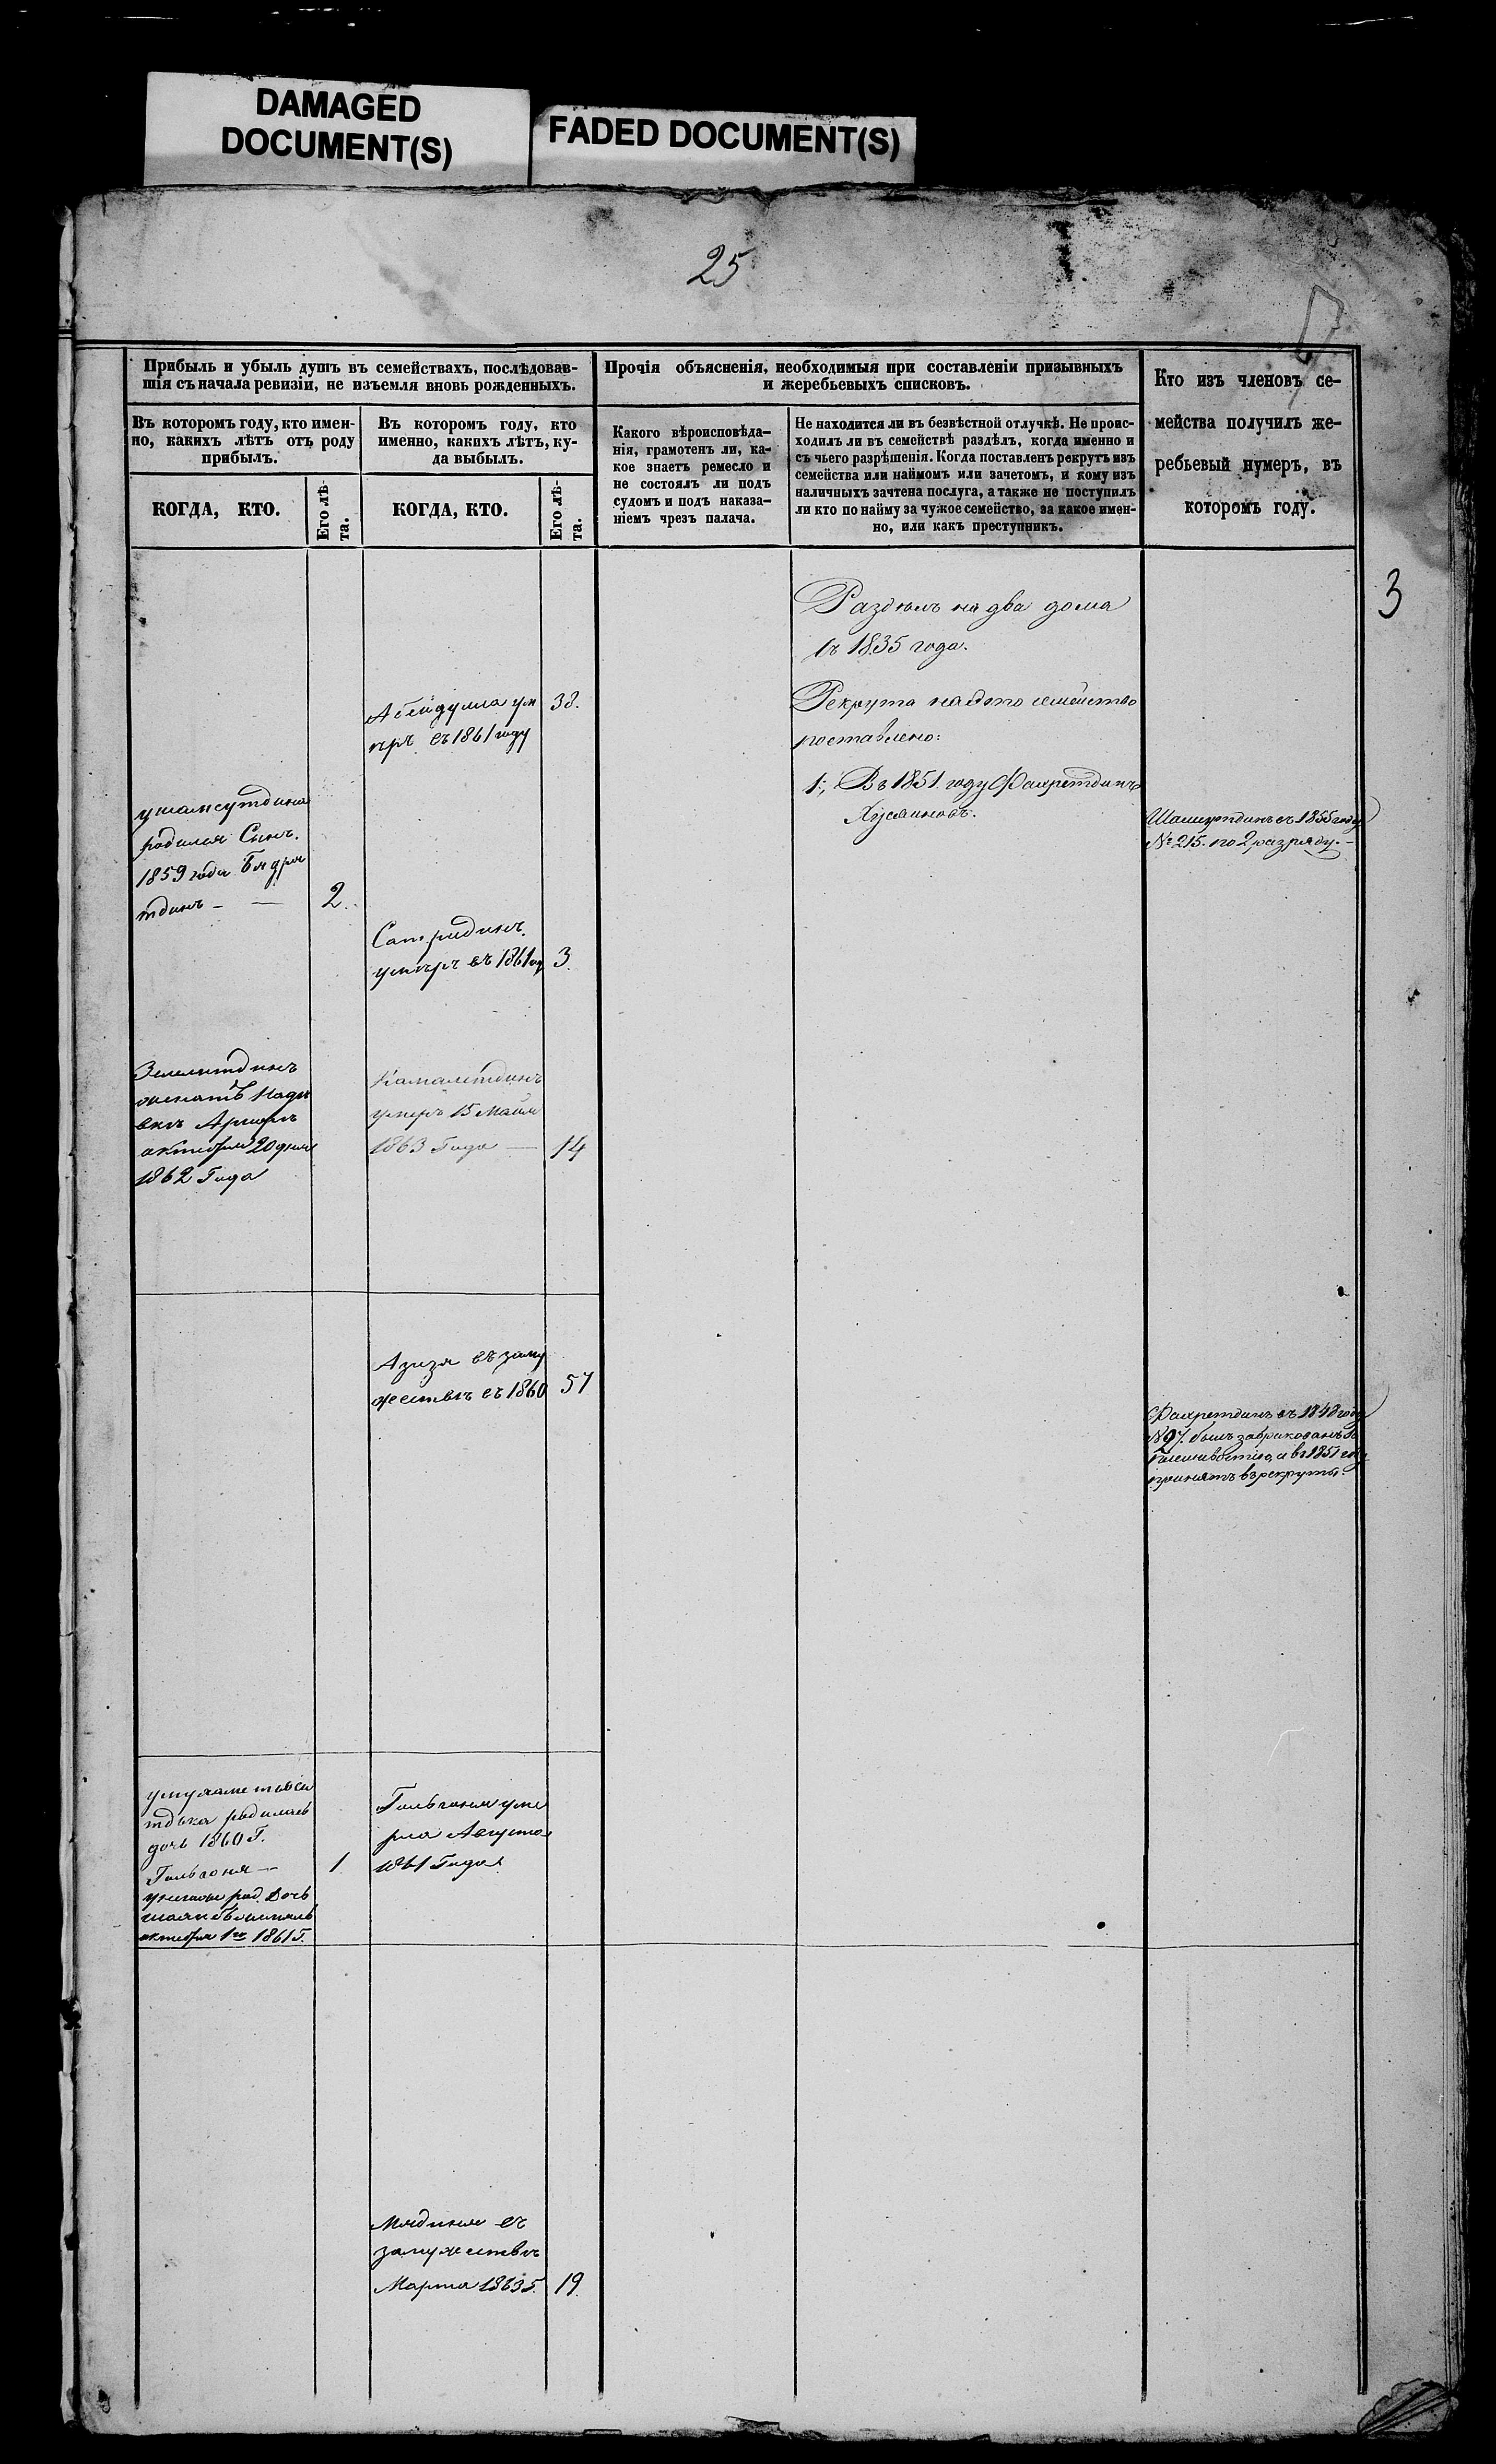 DAMAGED
DOCUMENT(S)
FADED DOCUMENT(S)
25
Прибыль и убыль душъ въ семействахъ, послѣдовав-
шія съ начала ревизіи, не изъемля вновь рожденныхъ.
Въ которомъ году, кто имен-
но, какихъ лѣтъ отъ роду
прибылъ.
КОГДА, КТО.
Его лѣ-
та.
Въ которомъ году, кто
именно, какихъ лѣтъ, ку-
да выбылъ.
КОГДА, КТО.
Его лѣ-
та.
Прочія объясненія, необходимыя при составленіи призывныхъ
и жеребьевыхъ списковъ.
Какого вѣроисповѣда-
нія, грамотенъ ли, ка-
кое знаетъ ремесло и
не состоялъ ли подъ
судомъ и подъ наказа-
ніемъ чрезъ палача.
Не находится ли въ безвѣстной отлучкѣ. Не проис-
ходилъ ли въ семействѣ раздѣлъ, когда именно и
съ чьего разрѣшенія. Когда поставленъ рекрутъ изъ
семейства или наймомъ или зачетомъ, и кому изъ
наличныхъ зачтена послуга, а также не поступилъ
ли кто по найму за чужое семейство, за какое имен-
но, или какъ преступникъ.
Кто изъ членовъ се-
мейства получилъ же-
ребьевый нумеръ, въ
которомъ году.
3
Раздѣлъ на два дома
съ 1835 года.
Абейдулла ум
ѣръ въ 1861 году
38.
Рекрута на это семейство
поставлено:
1, Въ 1851 году Фахретдинъ
Хусяиновъ.
у шамсутдина
родился Сынъ
1859 года Бядря
тдинъ — —
2.
Шамсутдинъ въ 1855 году
№ 215. по 2 разряду.
умѣръ въ 1861 году
3.
женатъ
октября 20 дня
1862 Года
Камалетдинъ
умеръ 15 Майя
1863 Года —
14
Азизя въ заму
жествѣ съ 1860
57
Фахретдинъ въ 1848 году
№ 97. былъ забракованъ за
а въ 1851 году
принятъ въ рекруты.
родилась
дочь 1860 Г.
1
род. Дочь
октября 1го 1861 Г.
уме
рла Августа
1861 Года
въ
замужествѣ
Марта 1863 Г.
19.